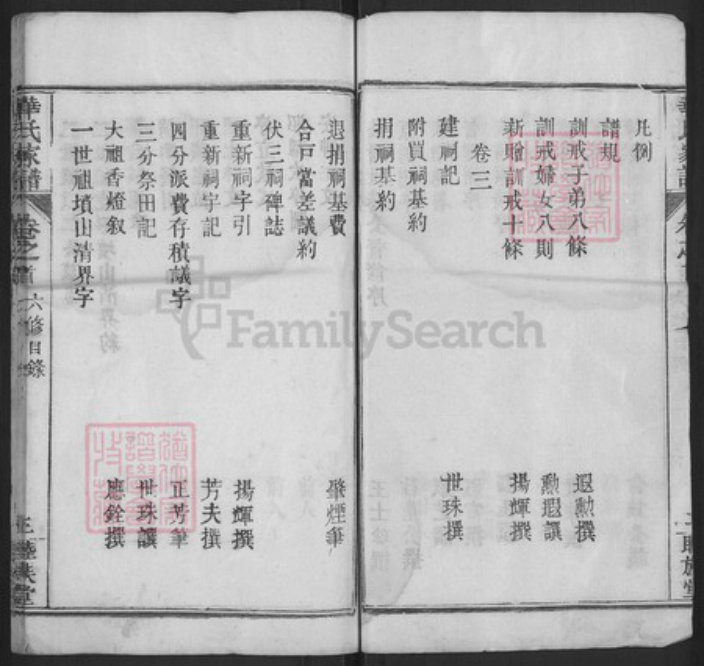 凡例
譜規
訓戒子弟八條 遐勲撰
訓戒婦女八則 勲遐讓
新贈訓戒十條 揚輝撰
卷三
建祠記 世珠撰
附買祠基約
捐祠基約
退捐祠基費 肇煙筆
合戸當差議約
伏三祠碑誌
重新祠字引 揚輝撰
重新祠宇記 芳夫撰
四分派費存積議字 正芳筆
三分祭田記 世珠讓
大祖香燈叙 應銓撰
一世祖墳山清界字
氏家譜 卷之首 六修目錄 三 堂
FamilySearch